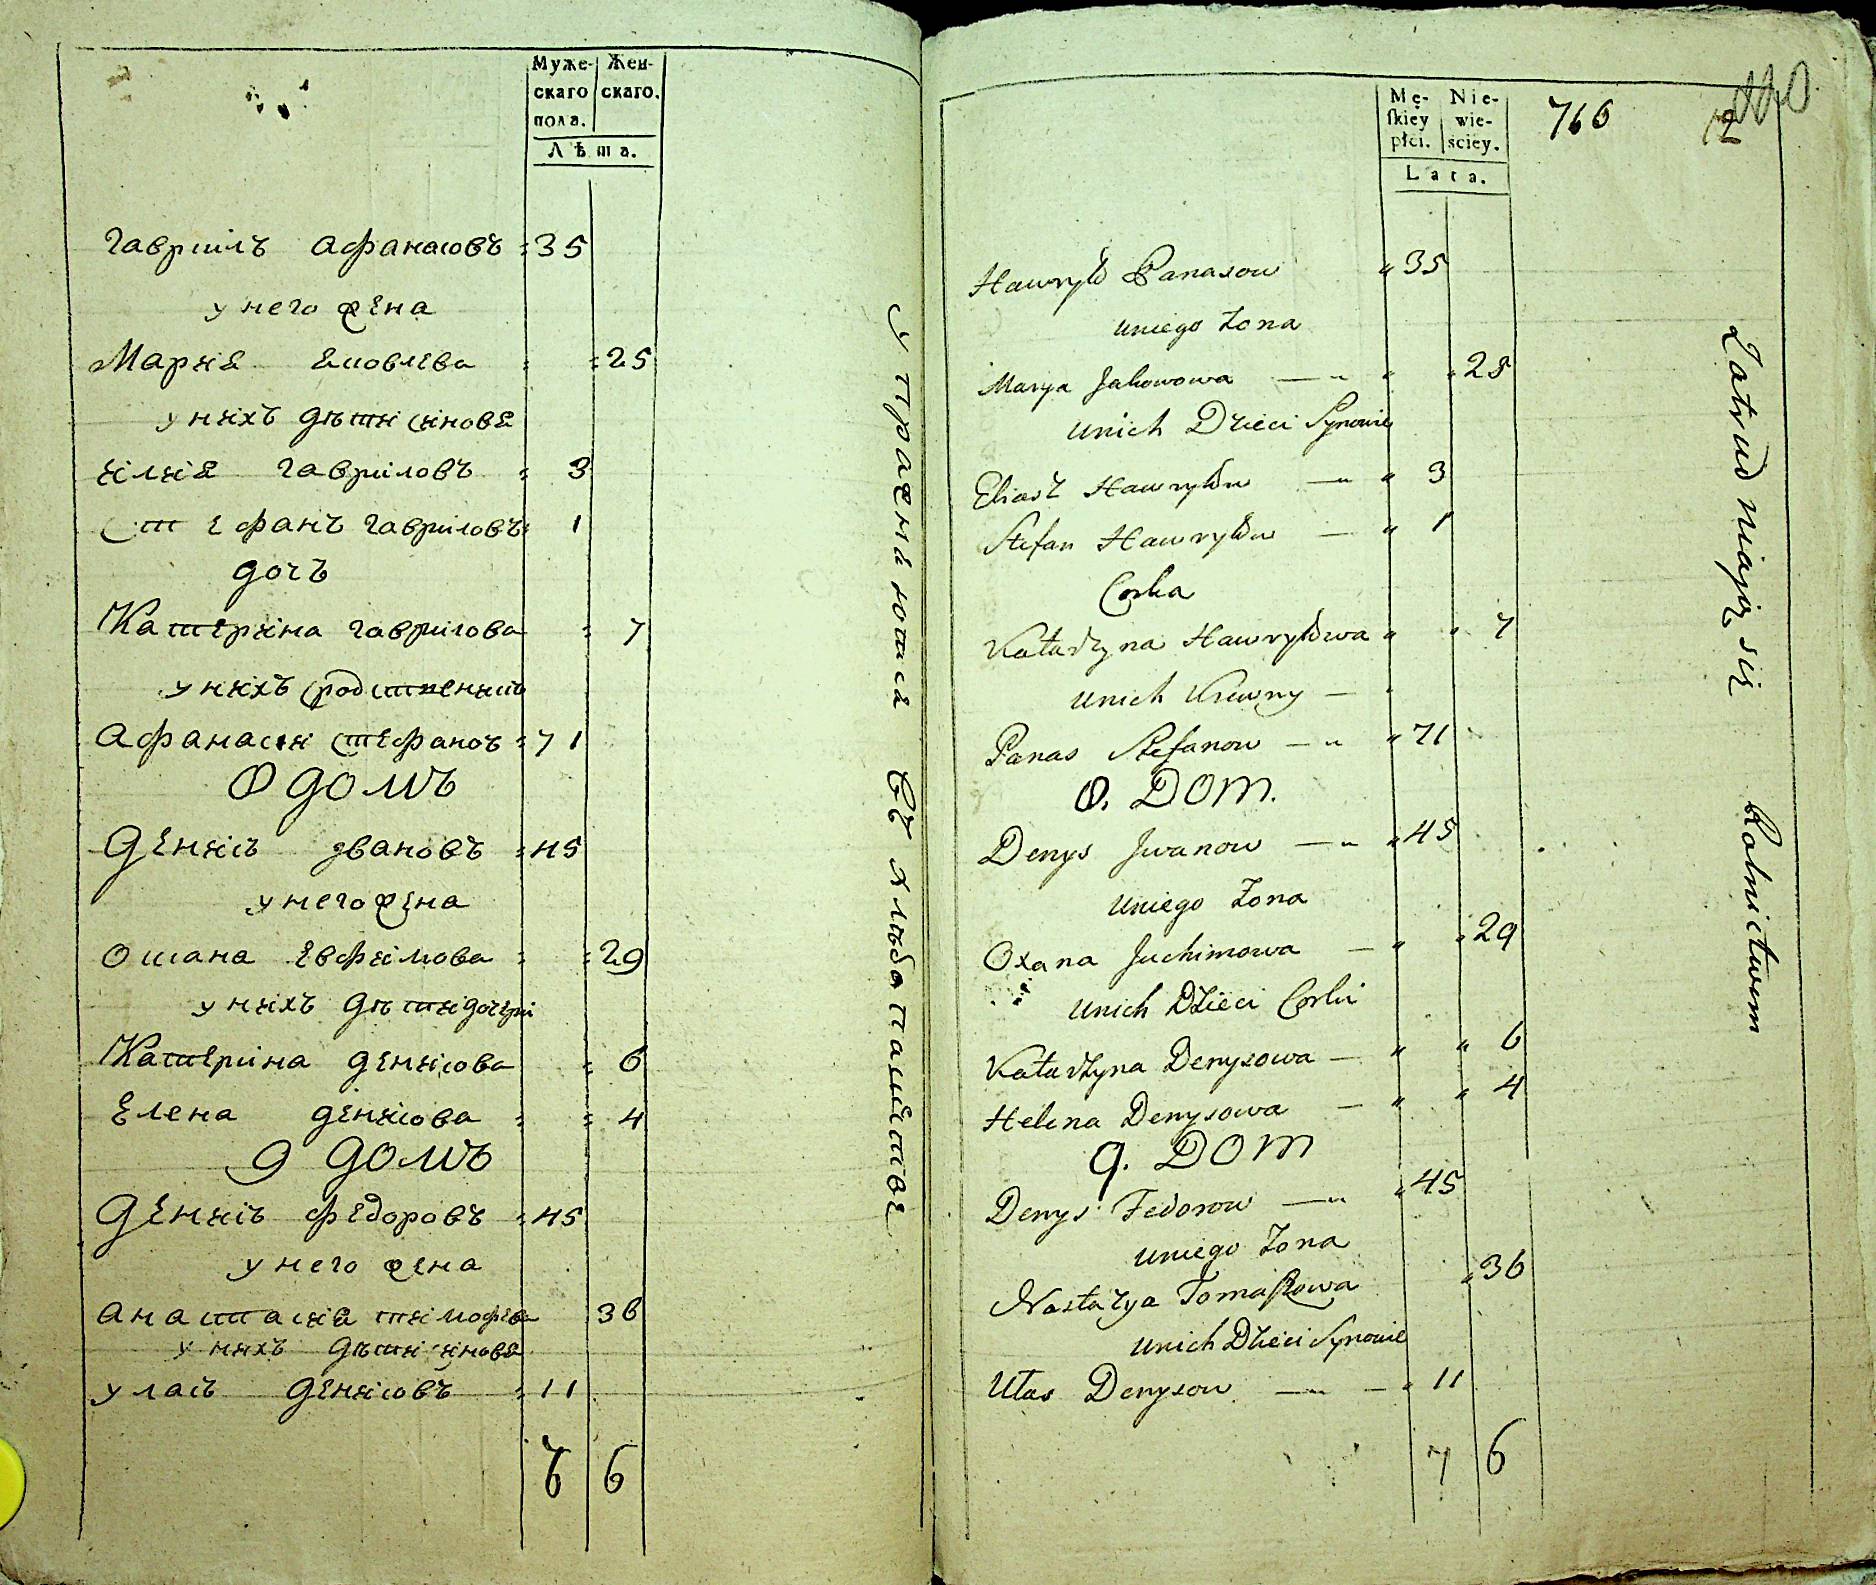 Муже- Жен-
скаго скаго.
пола.
Лѣта.
Гавриилъ Афанасовъ 35
у него жена
Мариа Яковлева 25
у нихъ дѣти синовя
Илия Гавриловъ 3
Стефанъ Гавриловъ 1
дочь
Катерина Гаврилова 7
у нихъ родственникъ
Афанасий Стефановъ 71
8 домъ
Денисъ Ивановъ 45
у него жена
Оксана Евфимова 29
у нихъ дѣти дочери
Катерина Денисова 6
Елена Денисова 4
9 домъ
Денисъ Федоровъ 45
у него жена
Анастасия Тимофеева 36
у нихъ дѣти синовя
Уласъ Денисовъ 11
7 6
Упражняются въ хлѣбопашествѣ
Mę- Nie-
skiey wie-
płci. sciey.
Lata.
766
12
110
Hawryło Panasow 35
uniego Żona
Marya Jakowowa 25
unich Dzieci Synowie
Eliasz Hawryłow 3
Stefan Hawryłow 1
Corka
Katarzyna Hawryłowa 7
unich Krewny
Panas Stefanow 71
8. DOM.
Denys Jwanow 45
uniego Żona
Oxana Juchimowa 29
unich Dzieci Corki
Katarzyna Denysowa 6
Helena Denysowa 4
9. DOM
Denys Fedorow 45
uniego Żona
Nastazya Tomaszowa 36
unich Dzieci Synowie
Ułas Denysow 11
7 6
Zatrudniaią się Rolnictwem